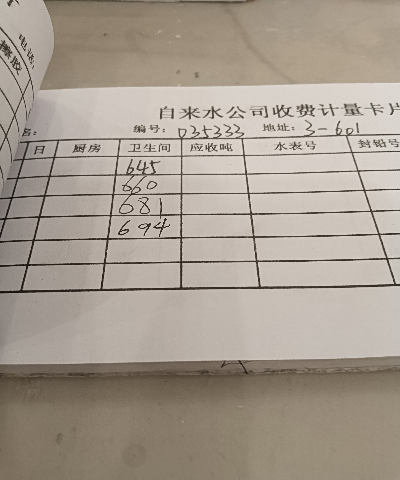 电话:
自来水公司收费计量卡片
名: 编号: 035333 地址: 3-601
日 厨房 卫生间 应收吨 水表号 封铅号
645
660
681
694